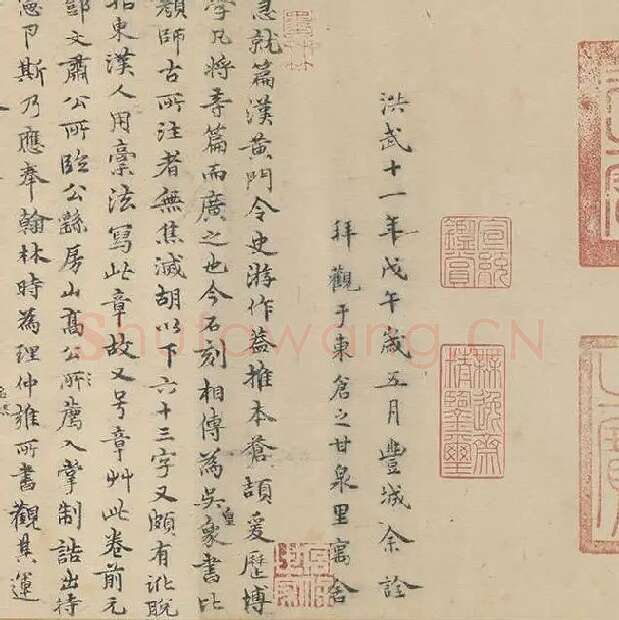 宣統鑑賞
無逸齋精鑒璽
洪武十一年戊午歲五月豐城余詮
拜觀于東倉之甘泉里寓舍
急就篇漢黃門令史游作蓋推本蒼頡爰歷博
學凡將等篇而廣之也今石刻相傳為吳皇象書比
顏師古所注者無焦滅胡以下六十三字又頗有訛脫
東漢人用稾法寫此章故又号章艸此卷前元
鄧文肅公所臨公繇房山高公所薦入掌制誥出持
卩斯乃應奉翰林時為理仲雍所書觀其運
Shufawang.CN